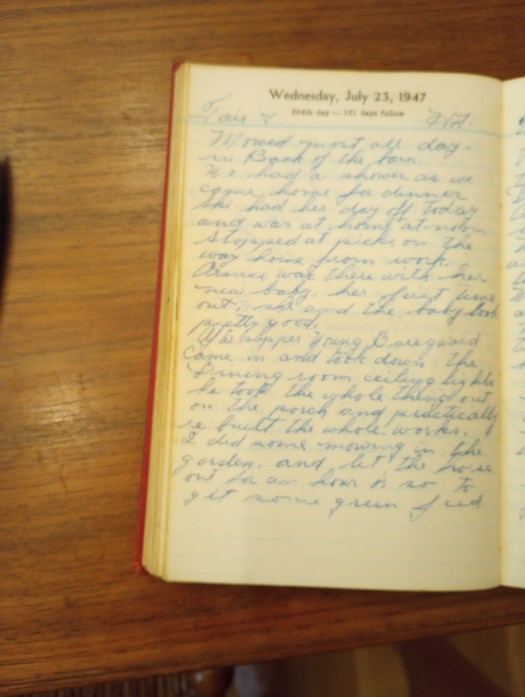 Wednesday, July 23, 1947
204th day — 161 days follow
Fair &
Mowed most all day
in Back of the barn
We had a shower as we
came home for dinner
had her day off today
and was at home at noon
stopped at picks on the
way home from work.
was there with her
new baby. her first time
out, she and the baby look
pretty good.
supper Young Bauregard
came in and took down the
Dining room ceiling lights
he took the whole thing out
on the porch and practically
re built the whole works.
I did some mowing in the
garden. and let the horse
out for an hour or so to
get some green feed